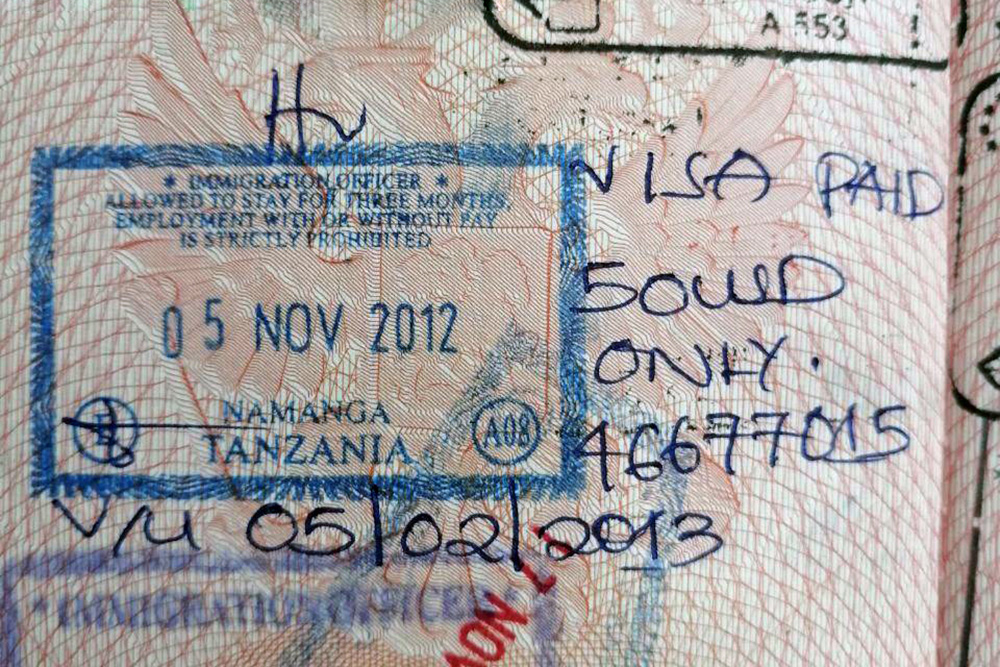 A 553
* IMMIGRATION OFFICER *
ALLOWED TO STAY FOR THREE MONTHS,
EMPLOYMENT WITH OR WITHOUT PAY
IS STRICTLY PROHIBITED
05 NOV 2012
NAMANGA
TANZANIA
A08
VISA PAID
50USD
ONLY.
46677015
V/U 05/02/2013
IMMIGRATION OFFICER